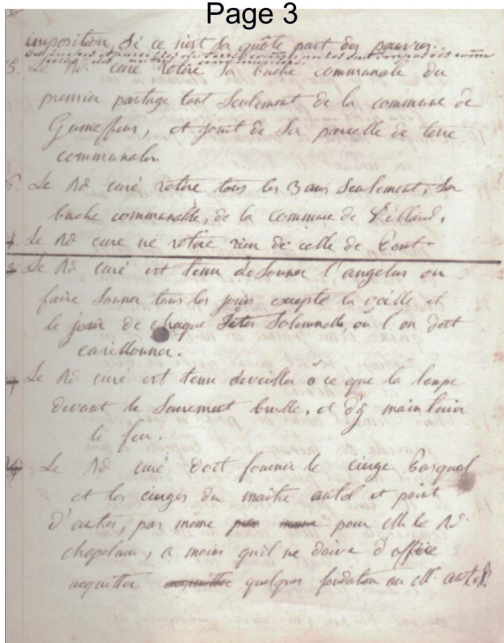 Page 3
imposition, si ce n'est sa quôte part des pauvres.
5. Le Rd. curé retire sa buche communale du
premier partage tant seulement de la commune de
et jouit de ses parcelle de terre
communales
6. Le Rd curé retire tous les 3 ans seulement, sa
buche communable, de la commune de Villard.
Le Rd curé ne retire rien de celle de
Le Rd curé est tenu de sonner l'angelus ou
faire sonner tous les jours excepté la veille et
le jour de chaque fêtes solemnelle, où l'on doit
carillonner.
Le Rd curé est tenu de veiller à ce que la lampe
devant le Sacrement brulle, et d'y maintenir
le feu.
Le Rd. curé doit fournir le cierge pasqual
et les cierges du maitre autel et point
D'autres, pas même pour le Rd
chapelain, a moins qu'il ne doive d'office
acquitter quelques fondation au